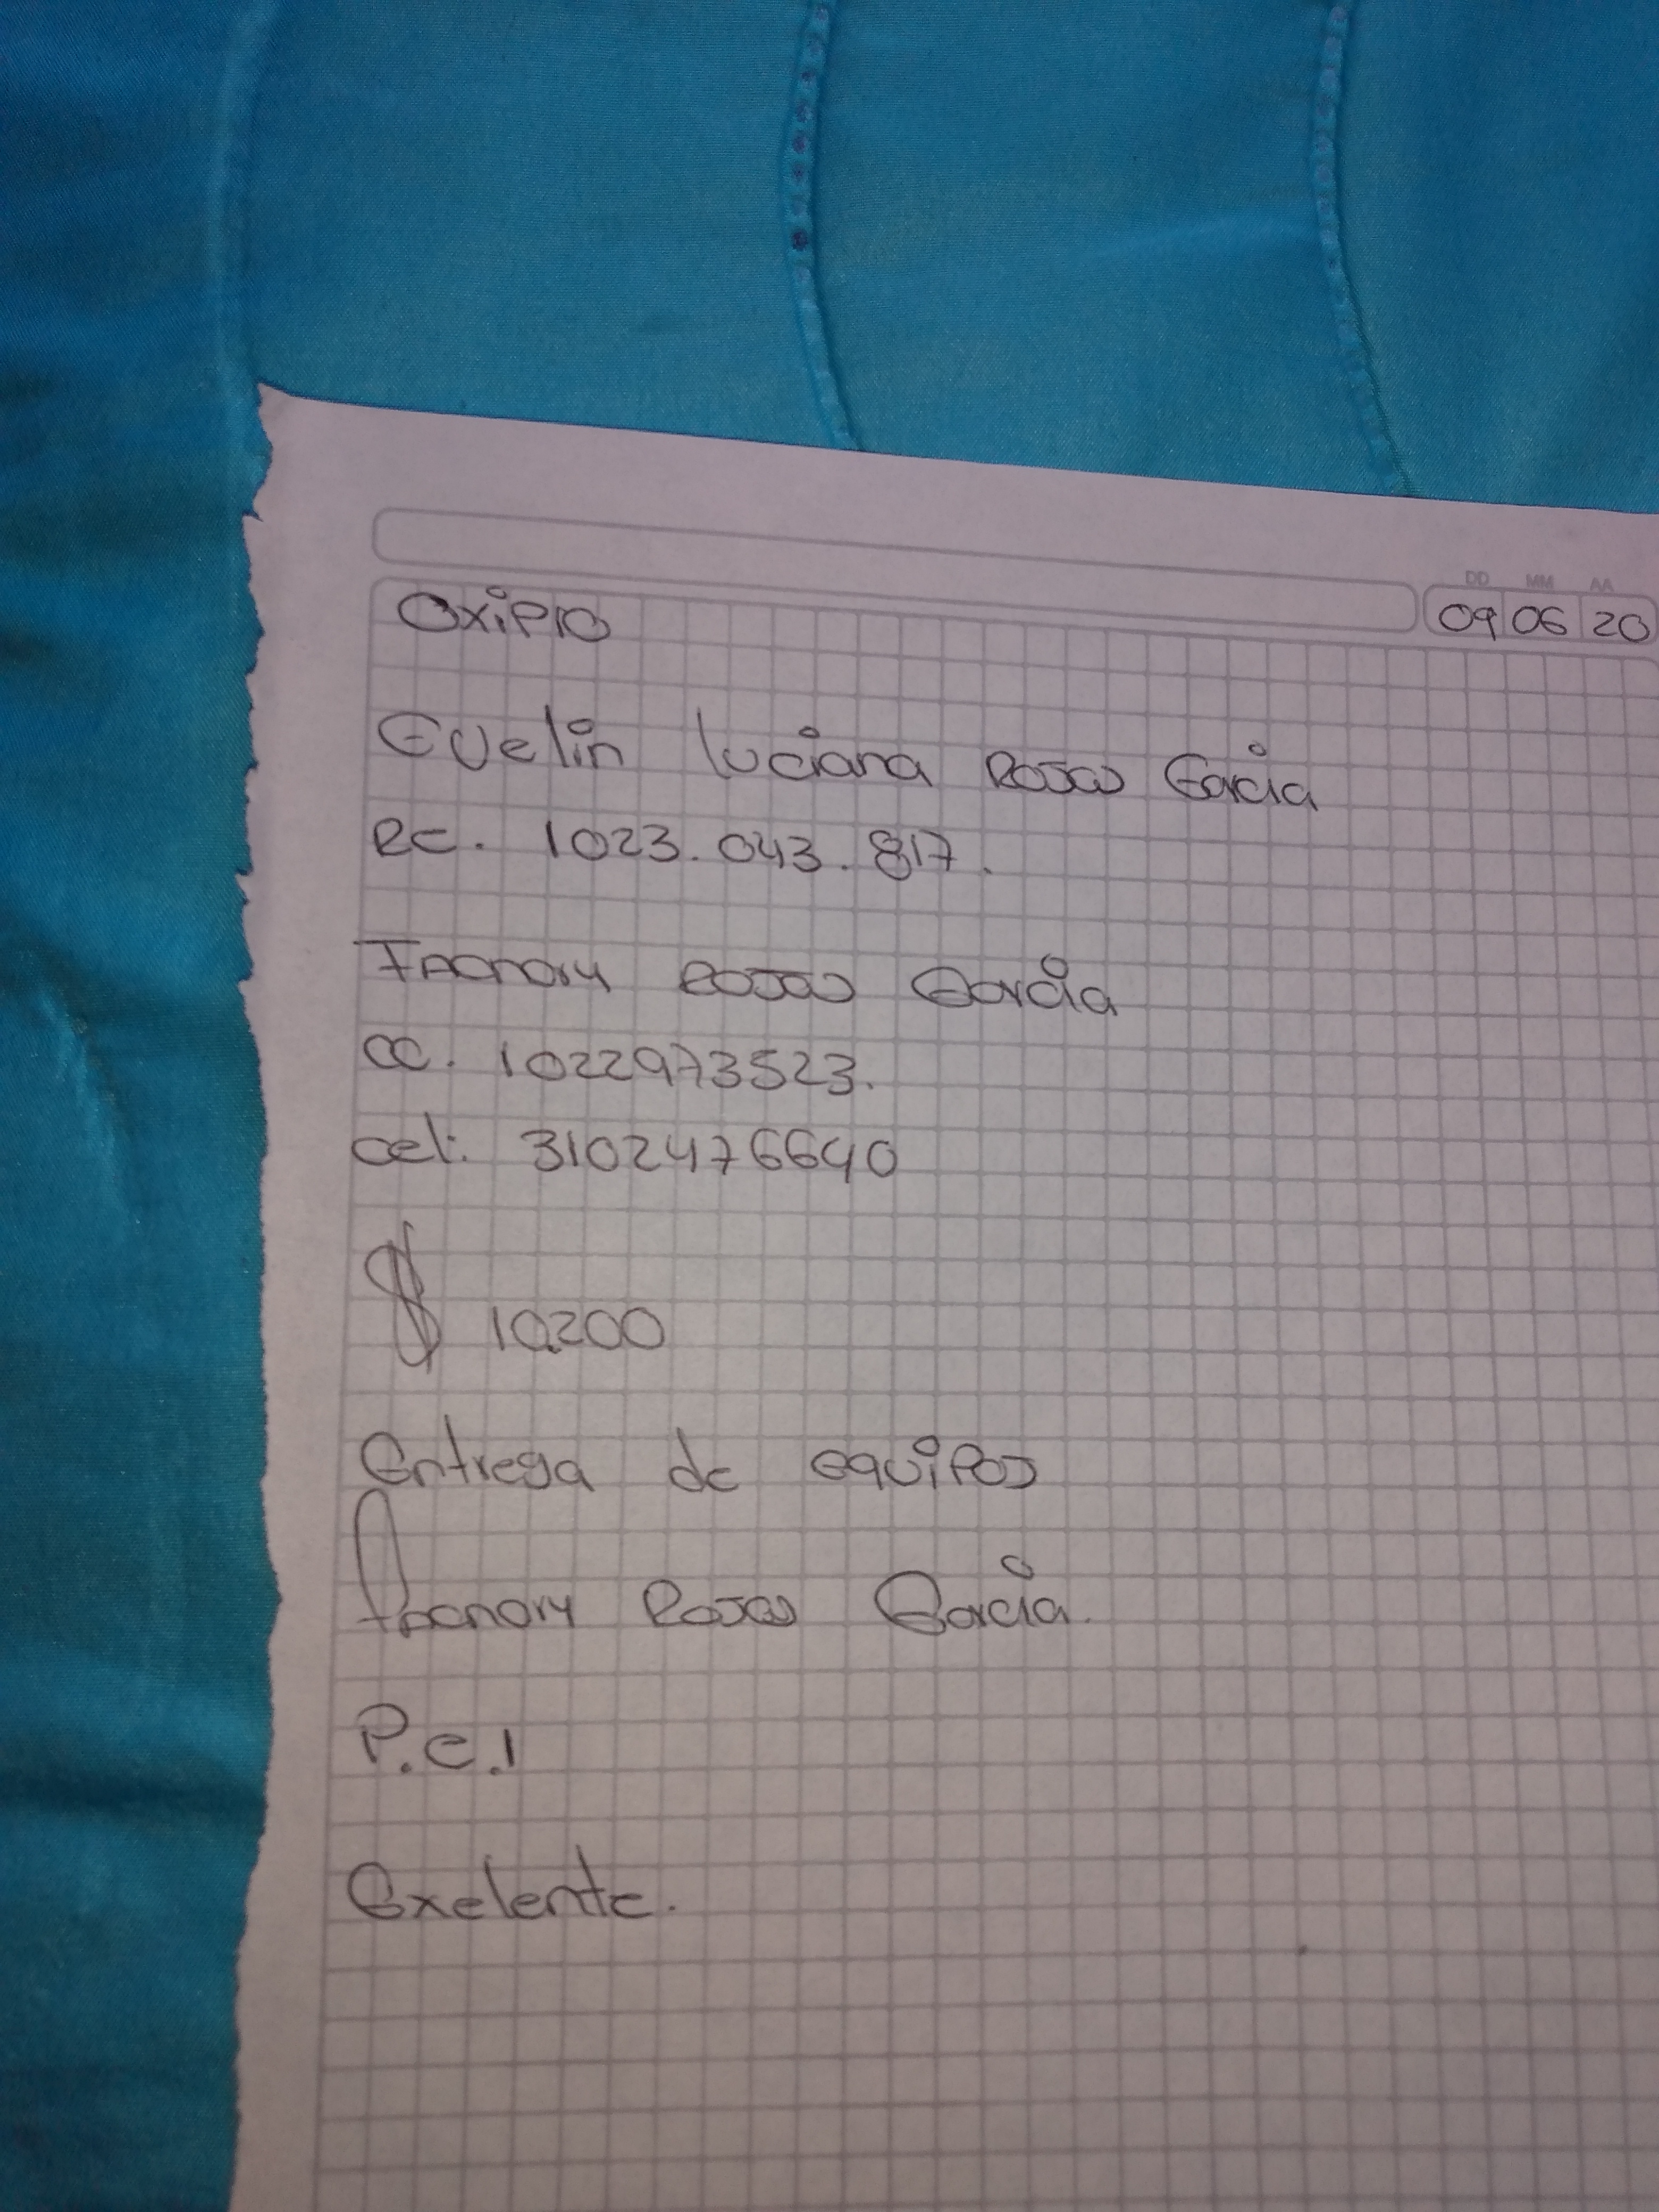 DD MM AA
09 06 20
OxiPro
Evelin luciana Rojas Garcia
RC. 1023.043.817.
Rojas Garcia
CC. 1022973523.
cel: 3102476640
$ 10.200
Entrega de equipos
Rojas Garcia.
P.C.1
Exelente.